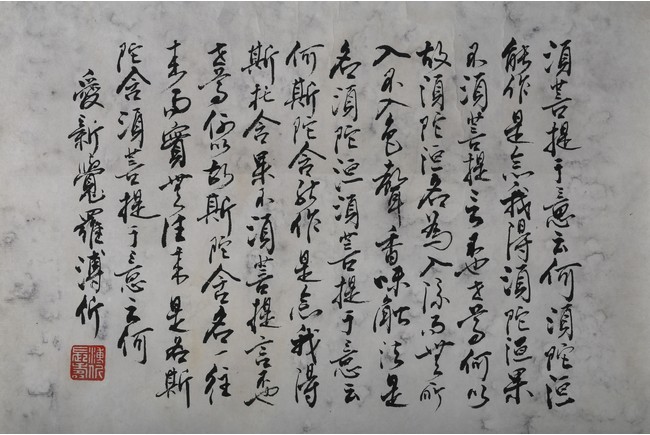 須菩提于意云何須陀洹
能作是念我得須陀洹果
不須菩提言也世尊何以
故須陀洹名為入流而無所
入不入色聲香味觸法是
名須陀洹須菩提于意云
何斯陀含能作是念我得
斯陀含果不須菩提言也
世尊何以故斯陀含名一往
來而實無往來是名斯
陀含須菩提于意云何
愛新覺羅溥伒